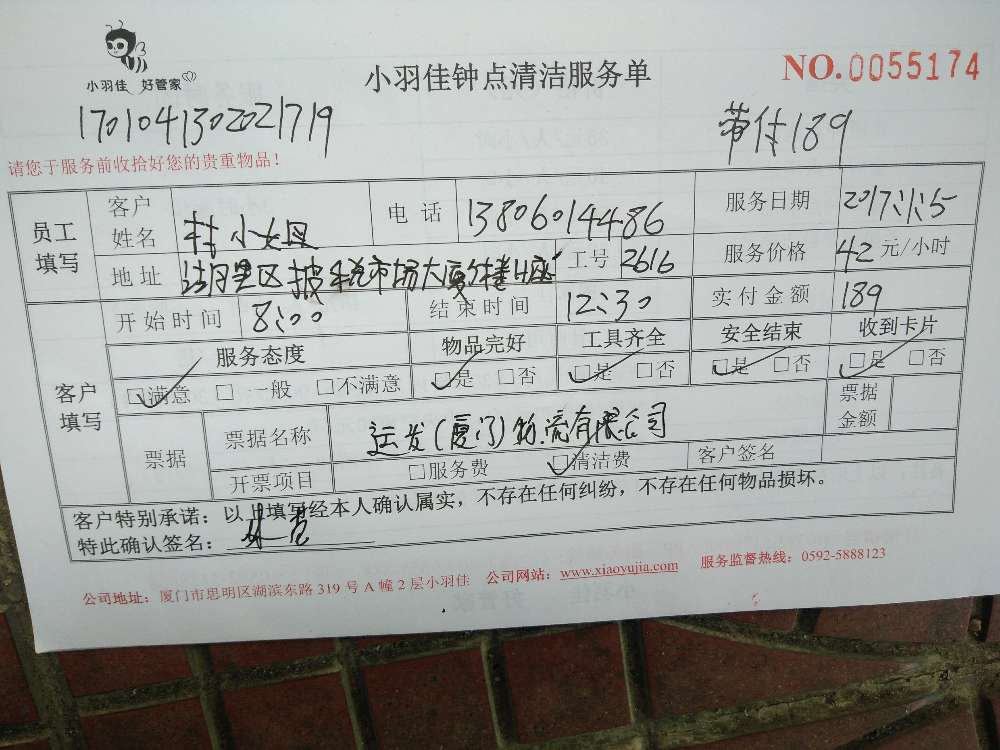 小羽佳 好管家
小羽佳钟点清洁服务单
NO.0055174
170104130202 1719
带付189
请您于服务前收拾好您的贵重物品！
员工填写 客户姓名 林小姐 电话 13806014486 服务日期 2017.1.5
地址 湖里区 市场大厦 楼 座 工号 2616 服务价格 42 元/小时
客户填写 开始时间 8:00 结束时间 12:30 实付金额 189
服务态度 物品完好 工具齐全 安全结束 收到卡片
□满意 □一般 □不满意 □是 □否 □是 □否 □是 □否 □是 □否
票据 票据名称 运发(厦门)物流有限公司 票据金额
开票项目 □服务费 □清洁费 客户签名
客户特别承诺：以上填写经本人确认属实，不存在任何纠纷，不存在任何物品损坏。
特此确认签名：
公司地址：厦门市思明区湖滨东路319号A幢2层小羽佳 公司网站：www.xiaoyujia.com 服务监督热线：0592-5888123